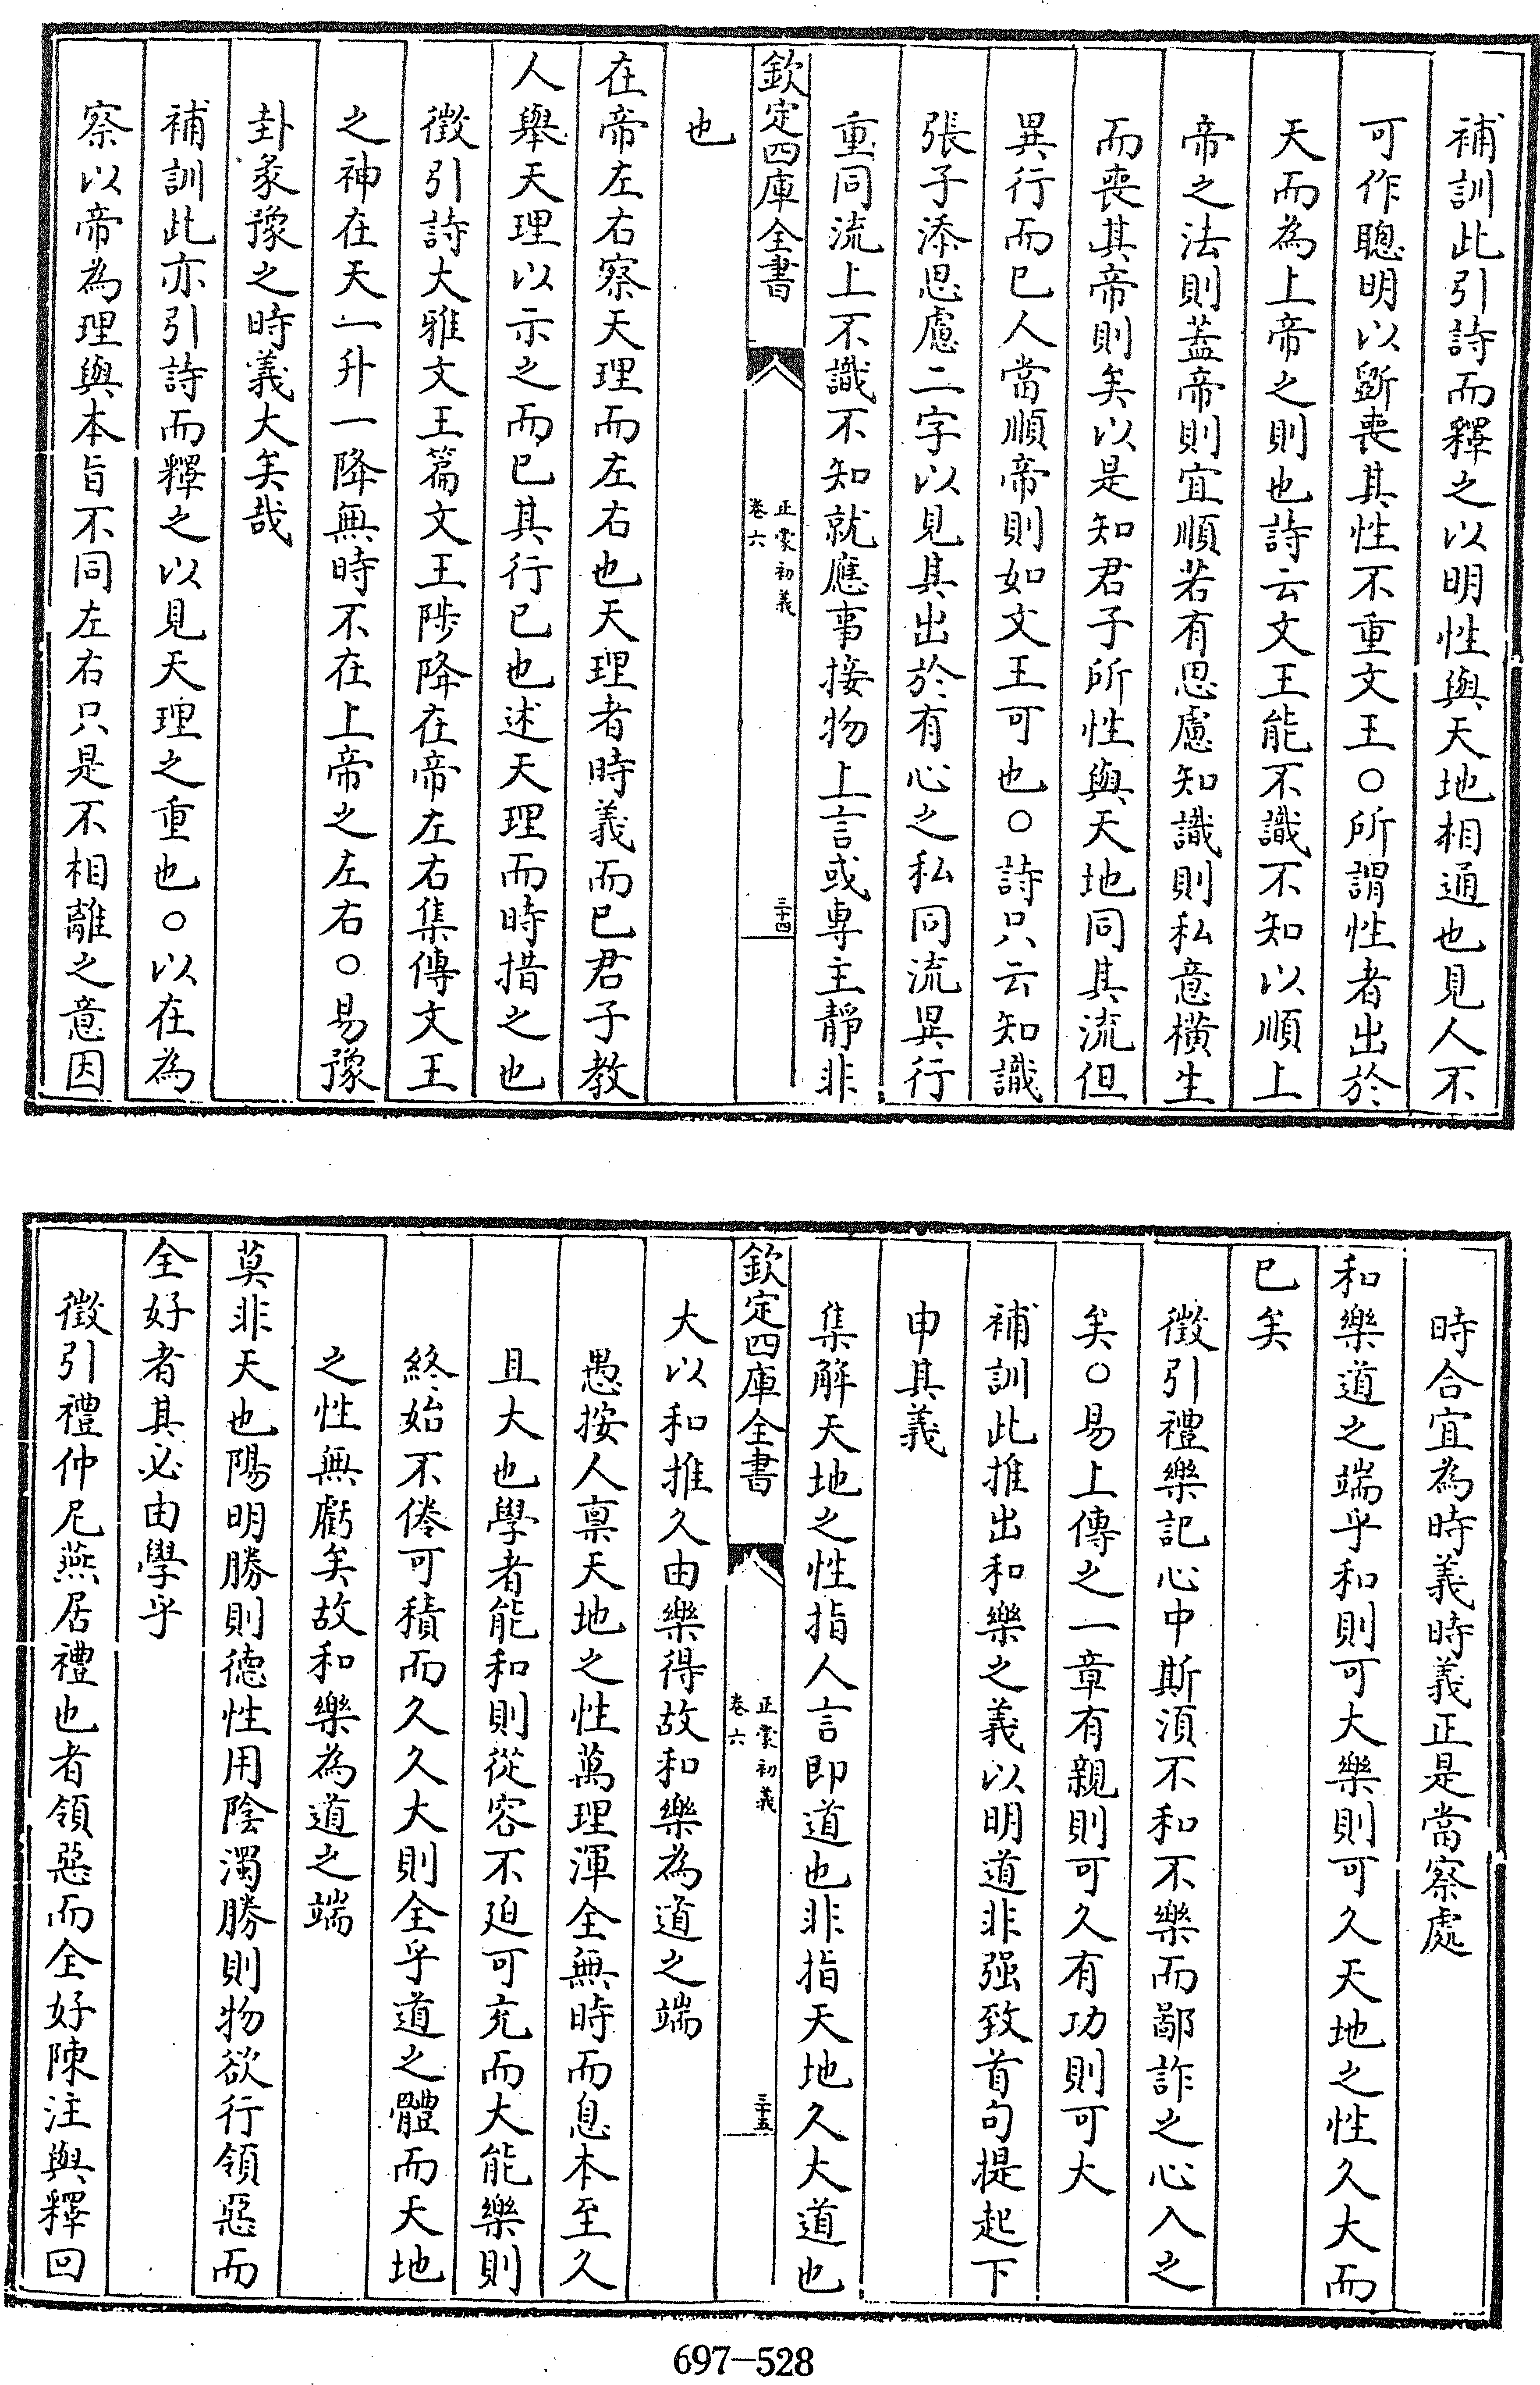 補訓此引詩而釋之以明性與天地相通也見人不
可作聰明以斲喪其性不重文王○所謂性者出於
天而為上帝之則也詩云文王能不識不知以順上
帝之法則蓋帝則宜順若有思慮知識則私意橫生
而喪其帝則矣以是知君子所性與天地同其流但
異行而已人當順帝則如文王可也○詩只云知識
張子添思慮二字以見其出於有心之私同流異行
重同流上不識不知就應事接物上言或專主靜非
欽定四庫全書
正蒙初義
卷六
三十四
也
在帝左右察天理而左右也天理者時義而已君子教
人舉天理以示之而已其行已也述天理而時措之也
徵引詩大雅文王篇文王陟降在帝左右集傳文王
之神在天一升一降無時不在上帝之左右○易豫
卦彖豫之時義大矣哉
補訓此亦引詩而釋之以見天理之重也○以在為
察以帝為理與本旨不同左右只是不相離之意因
時合宜為時義時義正是當察處
和樂道之端乎和則可大樂則可久天地之性久大而
已矣
徵引禮樂記心中斯須不和不樂而鄙詐之心入之
矣○易上傳之一章有親則可久有功則可大
補訓此推出和樂之義以明道非强致首句提起下
申其義
集解天地之性指人言即道也非指天地久大道也
欽定四庫全書
正蒙初義
卷六
三十五
大以和推久由樂得故和樂為道之端
愚按人禀天地之性萬理渾全無時而息本至久
且大也學者能和則從容不迫可充而大能樂則
終始不倦可積而久久大則全乎道之體而天地
之性無虧矣故和樂為道之端
莫非天也陽明勝則德性用陰濁勝則物欲行領惡而
全好者其必由學乎
徵引禮仲尼燕居禮也者領惡而全好陳注與釋回
697-528